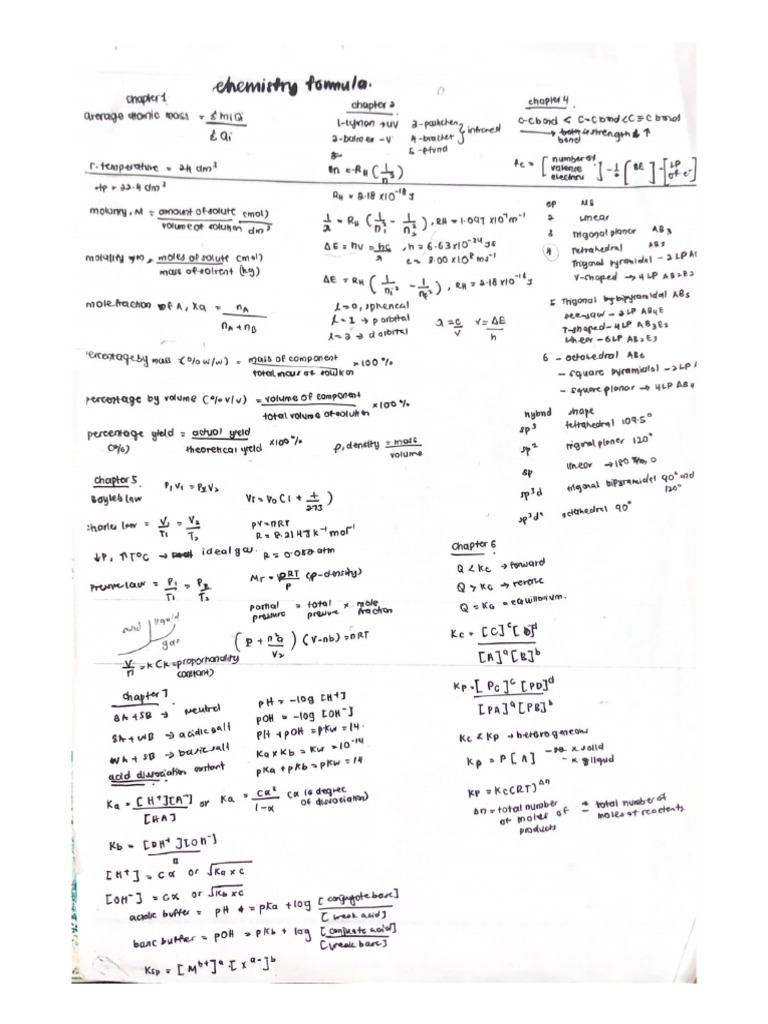 chemistry formula.
chapter 1
average atomic mass = Σ mi Qi / Σ Qi
r.temperature = 24 dm³
stp = 22.4 dm³
molarity, M = amount of solute (mol) / volume of solution dm³
molality = moles of solute (mol) / mass of solvent (kg)
mole fraction of A, Xa = nA / nA + nB
percentage by mass (% w/w) = mass of component / total mass of solution × 100%
percentage by volume (% v/v) = volume of component / total volume of solution × 100%
percentage yield (%) = actual yield / theoretical yield × 100%
ρ, density = mass / volume
chapter 2
1-lyman → UV 3-paschen
2-balmer - V 4-bracket } infrared
5-pfund
En = -RH (1/n²)
RH = 2.18 × 10⁻¹⁸ J
1/λ = RH (1/n₁² - 1/n₂²), RH = 1.097 × 10⁷ m⁻¹
ΔE = hv = hc/λ, h = 6.63 × 10⁻³⁴ Js
c = 3.00 × 10⁸ ms⁻¹
ΔE = RH (1/ni² - 1/nf²), RH = 2.18 × 10⁻¹⁸ J
l = 0, spherical
l = 1 → p orbital
l = 2 → d orbital
λ = c/v v = ΔE/h
chapter 4
C-C bond < C=C bond < C≡C bond
bond strength ↑
Fc = [number of valence electron] - 1/2 [BE] - [LP of e⁻]
ep MG
2 linear
3 Trigonal planar AB3
4 Tetrahedral
Trigonal pyramidal - 2 LP
V-shaped → 4 LP AB2E2
5 Trigonal bipyramidal AB5
see-saw - 2LP AB4E
T-shaped - 4LP AB3E2
linear - 6LP AB2E3
6 - octahedral AB6
- square pyramidal - 2LP
- square planar → 4LP AB4
hybrid shape
sp³ tetrahedral 109.5°
sp² trigonal planer 120°
sp linear → 180
sp³d trigonal bipyramidal 90° and 120°
sp³d² octahedral 90°
chapter 5
Boyles law P₁V₁ = P₂V₂
Charles law = V₁/T₁ = V₂/T₂
↓P, ↑T°C → ideal gas.
Pressure law = P₁/T₁ = P₂/T₂
solid liquid
gas
V/n = k (k = proportionality constant)
Vt = V₀ (1 + t/273)
PV = nRT
R = 8.314 J k⁻¹ mol⁻¹
R = 0.082 atm
Mr = ρRT/P (ρ-density)
partial pressure = total pressure × mole fraction
(P + n²a/V²) (V-nb) = nRT
chapter 6
Q < Kc → forward
Q > Kc → reverse
Q = Kc = equilibrium.
Kc = [C]ᶜ[D]ᵈ / [A]ᵃ[B]ᵇ
Kp = [PC]ᶜ[PD]ᵈ / [PA]ᵃ[PB]ᵇ
Kc & Kp → heterogeneous
Kp = P[A] - x solid
- x liquid
Kp = Kc(RT)^Δn
Δn = total number of moles of products - total number of moles of reactants
chapter 7
SA + SB → neutral
SA + WB → acidic salt
WA + SB → basic salt
acid dissociation constant
pH = -log [H⁺]
pOH = -log [OH⁻]
pH + pOH = pKw = 14.
Ka × Kb = Kw = 10⁻¹⁴
pKa + pKb = pKw = 14
Ka = [H⁺][A⁻] / [HA] or Ka = Cα² / 1-α (α is degree of dissociation)
Kb = [BH⁺][OH⁻] / B
[H⁺] = Cα or √Ka × c
[OH⁻] = Cα or √Kb × c
acidic buffer = pH = pKa + log [conjugate base] / [weak acid]
basic buffer = pOH = pKb + log [conjugate acid] / [weak base]
Ksp = [M^b+]ᵃ · [X^a-]ᵇ